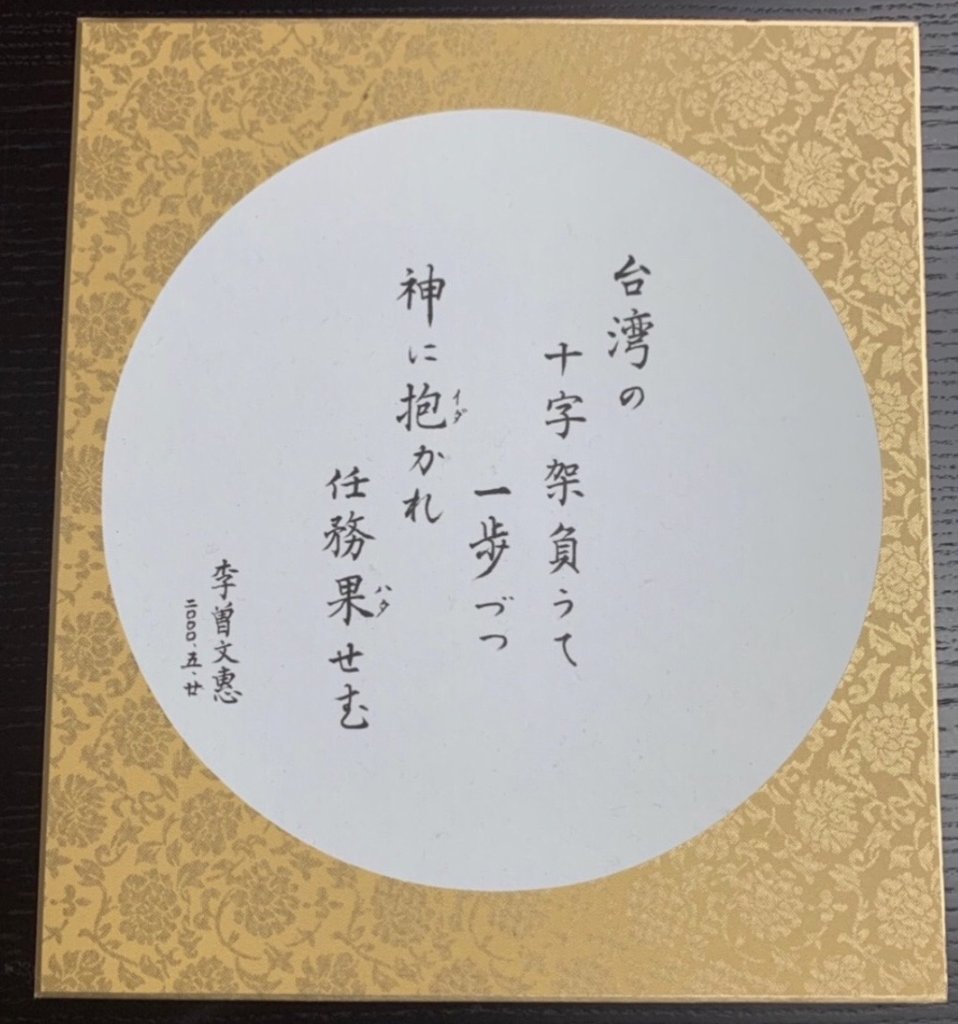 台湾の
十字架負うて
一歩づつ
神に抱かれ
イダ
任務果せむ
ハタ
李曽文惠
二〇〇〇、五、廿